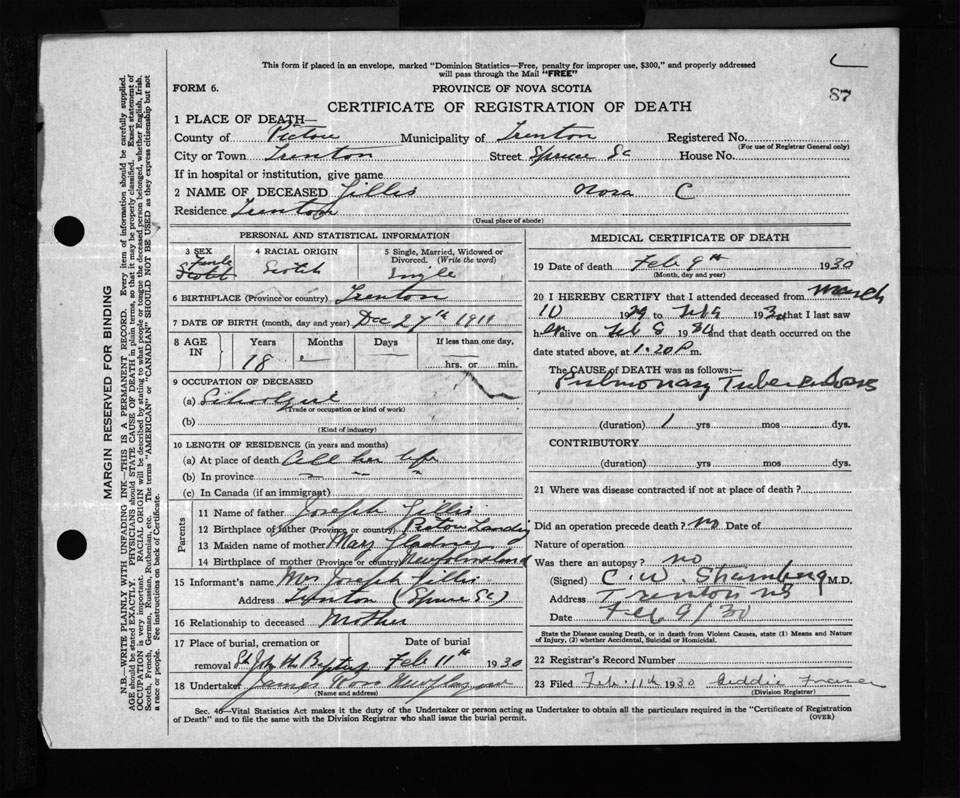 This form if placed in an envelope, marked "Dominion Statistics—Free, penalty for improper use, $300," and properly addressed
will pass through the Mail "FREE"
87
FORM 6.
PROVINCE OF NOVA SCOTIA
CERTIFICATE OF REGISTRATION OF DEATH
1 PLACE OF DEATH—
County of Pictou Municipality of Trenton Registered No.
(For use of Registrar General only)
City or Town Trenton Street Spruce St House No.
If in hospital or institution, give name
2 NAME OF DECEASED Gillis Nora C
Residence Trenton
(Usual place of abode)
PERSONAL AND STATISTICAL INFORMATION
3 SEX Female Scotch
4 RACIAL ORIGIN Scotch
5 Single, Married, Widowed or Divorced. (Write the word) Single
6 BIRTHPLACE (Province or country) Trenton
7 DATE OF BIRTH (month, day and year) Dec 27th 1911
8 AGE IN Years Months Days If less than one day,
18 — — hrs. or min.
9 OCCUPATION OF DECEASED
(a) School girl
(Trade or occupation or kind of work)
(b)
(Kind of industry)
10 LENGTH OF RESIDENCE (in years and months)
(a) At place of death All her life
(b) In province — — "
(c) In Canada (if an immigrant)
Parents
11 Name of father Joseph Gillis
12 Birthplace of father (Province or country) Landing
13 Maiden name of mother Mary
14 Birthplace of mother (Province or country) Newfoundland
15 Informant's name Mrs Joseph Gillis
Address Trenton (Spruce St)
16 Relationship to deceased Mother
17 Place of burial, cremation or removal St John the Baptist Date of burial Feb 11th 1930
18 Undertaker James Ross New Glasgow
(Name and address)
MEDICAL CERTIFICATE OF DEATH
19 Date of death Feb 9th 1930
(Month, day and year)
20 I HEREBY CERTIFY that I attended deceased from March
10 1929 to Feb 9 1930 that I last saw
her alive on Feb 8 1930 and that death occurred on
date stated above, at 1.20 P m.
The CAUSE OF DEATH was as follows:—
Pulmonary Tuberculosis
(duration) 1 yrs mos dys.
CONTRIBUTORY
(duration) yrs mos dys.
21 Where was disease contracted if not at place of death?
Did an operation precede death? no Date of
Nature of operation
Was there an autopsy? no
(Signed) C. W. M.D.
Address Trenton NS
Date Feb 9/30
State the Disease causing Death, or in death from Violent Causes, state (1) Means and Nature
of Injury, (2) whether Accidental, Suicidal or Homicidal.
22 Registrar's Record Number
23 Filed Feb. 11th 1930 Fraser
(Division Registrar)
Sec. 46—Vital Statistics Act makes it the duty of the Undertaker or person acting as Undertaker to obtain all the particulars required in the "Certificate of Registration
of Death" and to file the same with the Division Registrar who shall issue the burial permit.
(OVER)
MARGIN RESERVED FOR BINDING
N.B.—WRITE PLAINLY WITH UNFADING INK—THIS IS A PERMANENT RECORD. Every item of information should be carefully supplied.
AGE should be stated EXACTLY. PHYSICIANS should STATE CAUSE OF DEATH in plain terms, so that it may be properly classified. Exact statement of
OCCUPATION is very important. RACIAL ORIGIN will be described by stating to what people or tongue the deceased person belonged, whether English, Irish,
Scotch, French, German, Russian, Ruthenian, etc. The terms "AMERICAN" or "CANADIAN" SHOULD NOT BE USED as they express citizenship but not
a race or people. See instructions on back of Certificate.